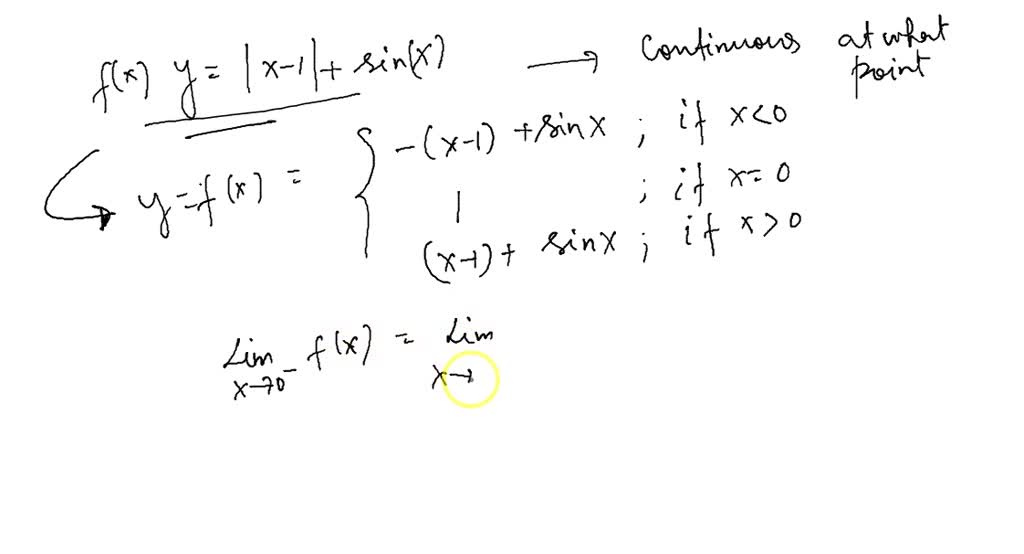 f(x) y = |x-1| + sin(x) → Continuous at what point
y = f(x) = { -(x-1) + sinx ; if x<0
1 ; if x=0
(x-1) + sinx ; if x>0
Lim x→0⁻ f(x) = Lim x→